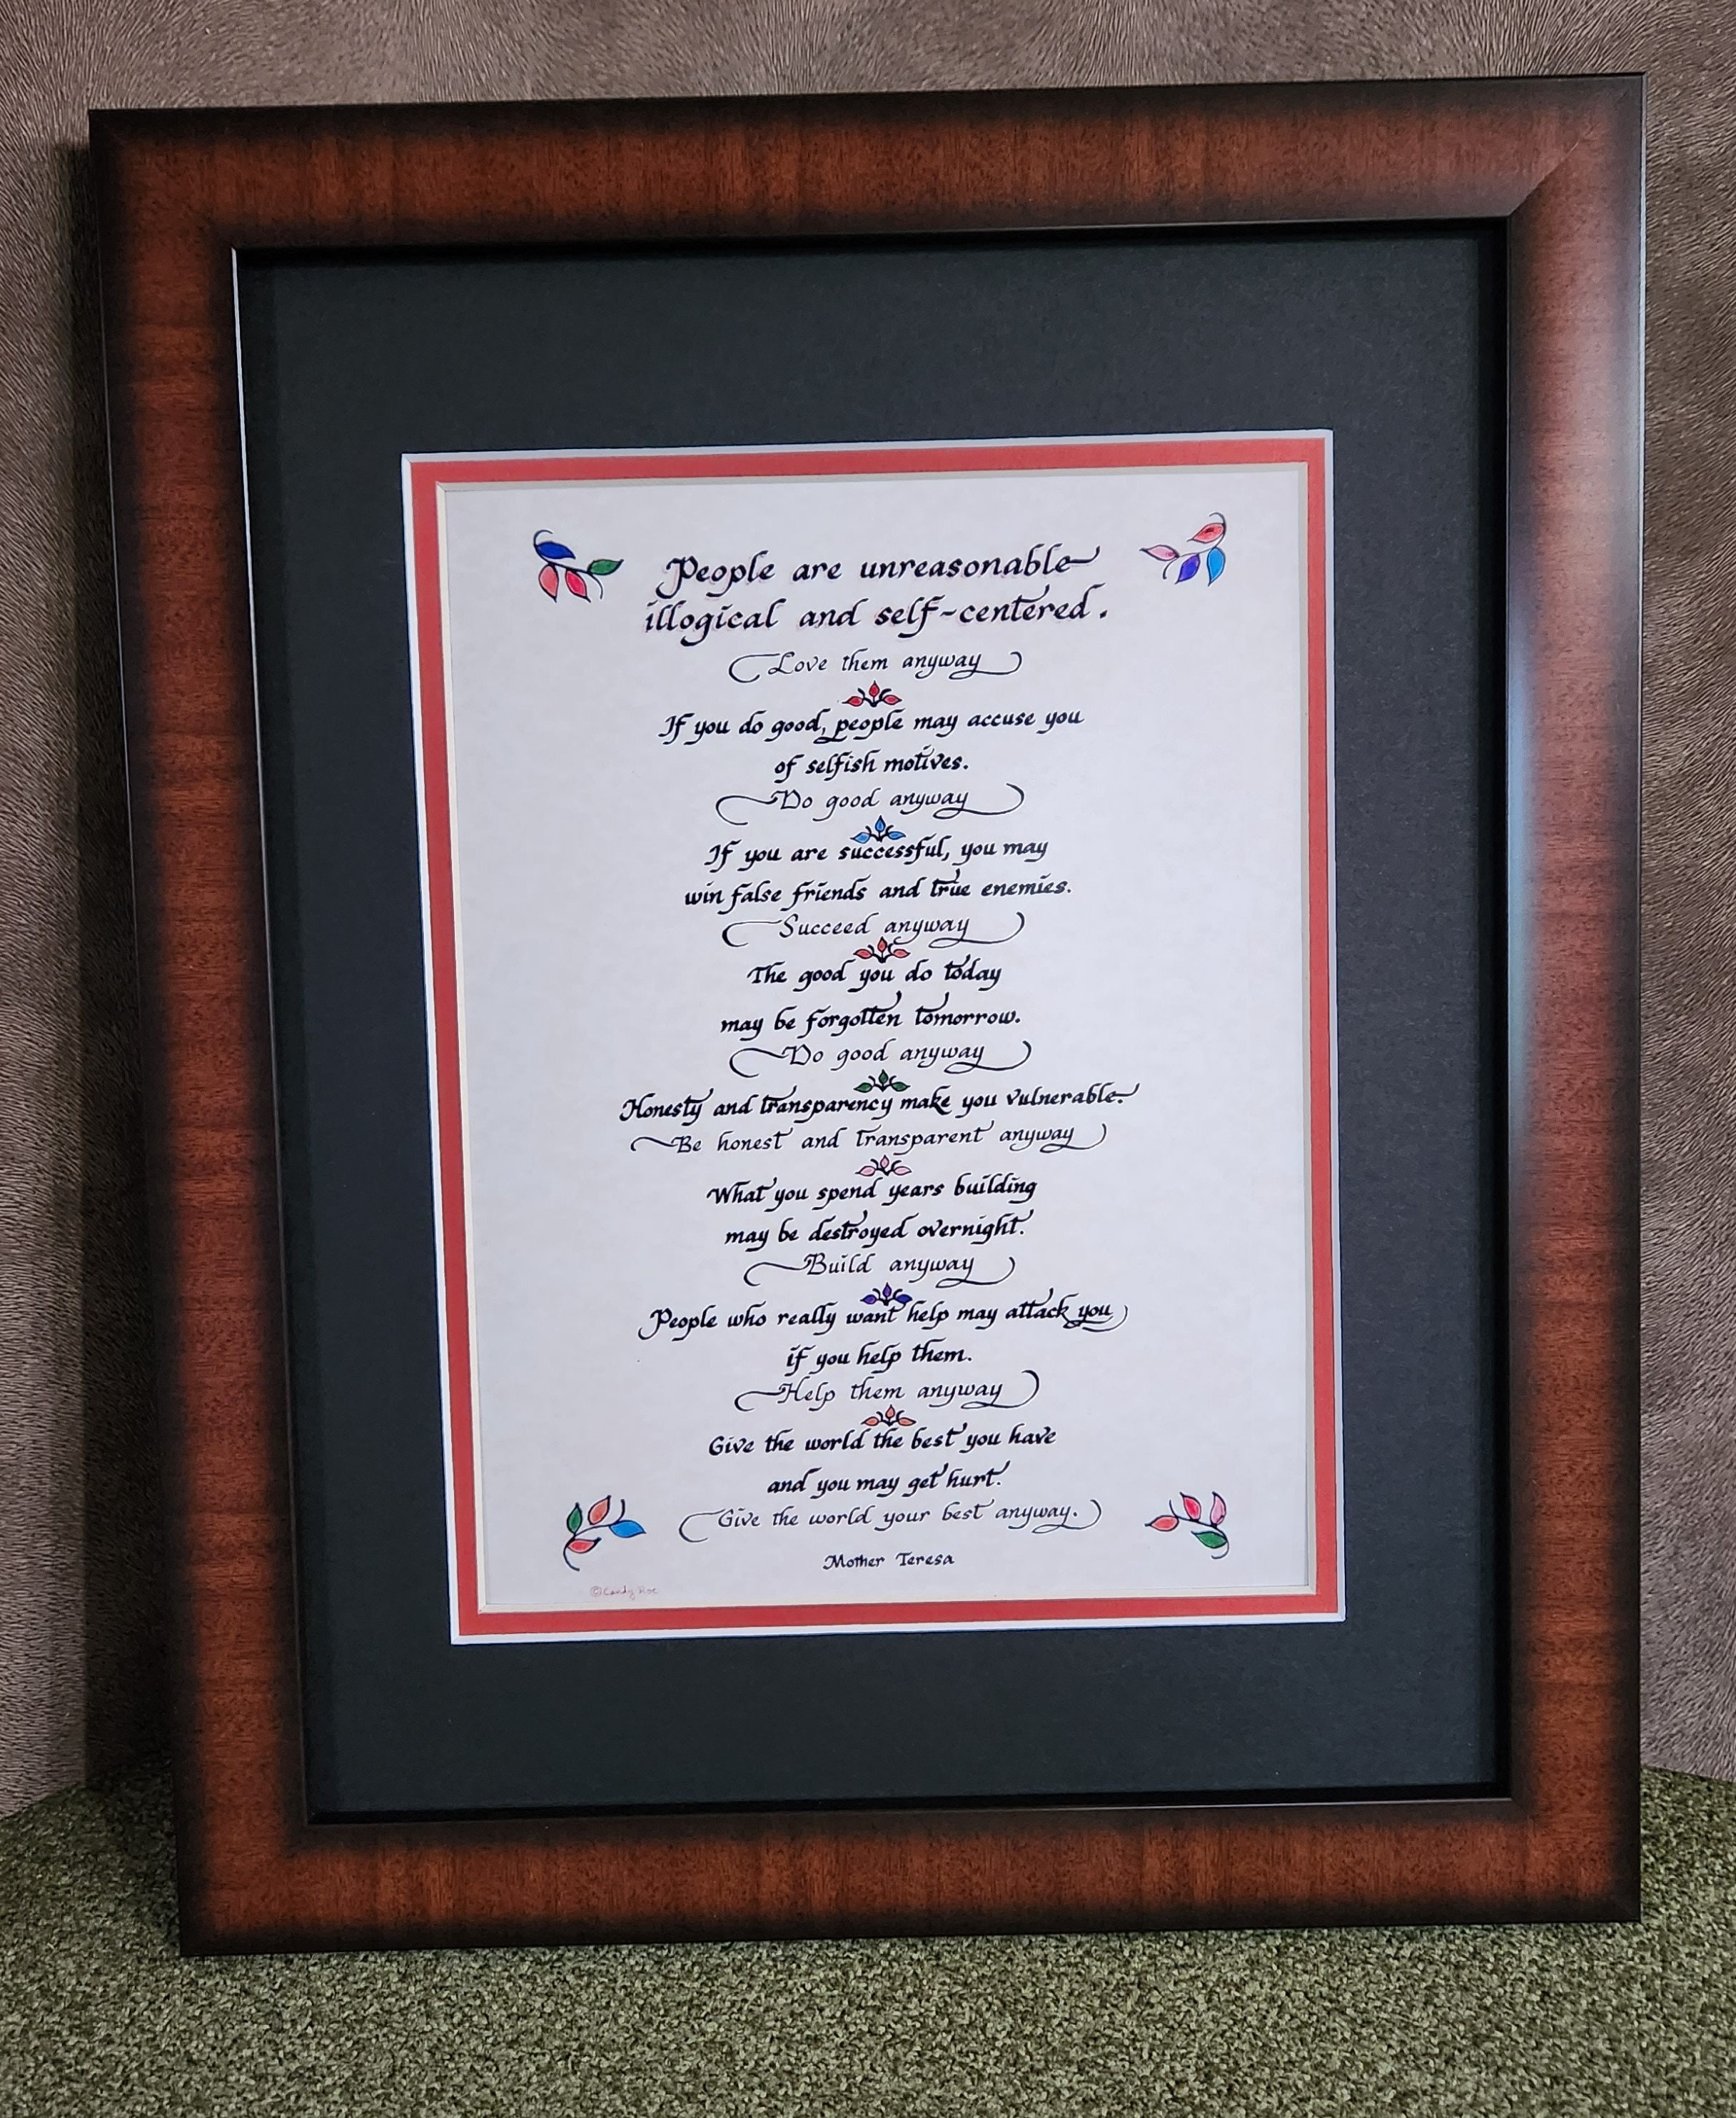 People are unreasonable
illogical and self-centered.
Love them anyway
If you do good, people may accuse you
of selfish motives.
Do good anyway
If you are successful, you may
win false friends and true enemies.
Succeed anyway
The good you do today
may be forgotten tomorrow.
Do good anyway
Honesty and transparency make you vulnerable.
Be honest and transparent anyway
What you spend years building
may be destroyed overnight.
Build anyway
People who really want help may attack you
if you help them.
Help them anyway
Give the world the best you have
and you may get hurt.
Give the world your best anyway.
Mother Teresa
© Candy